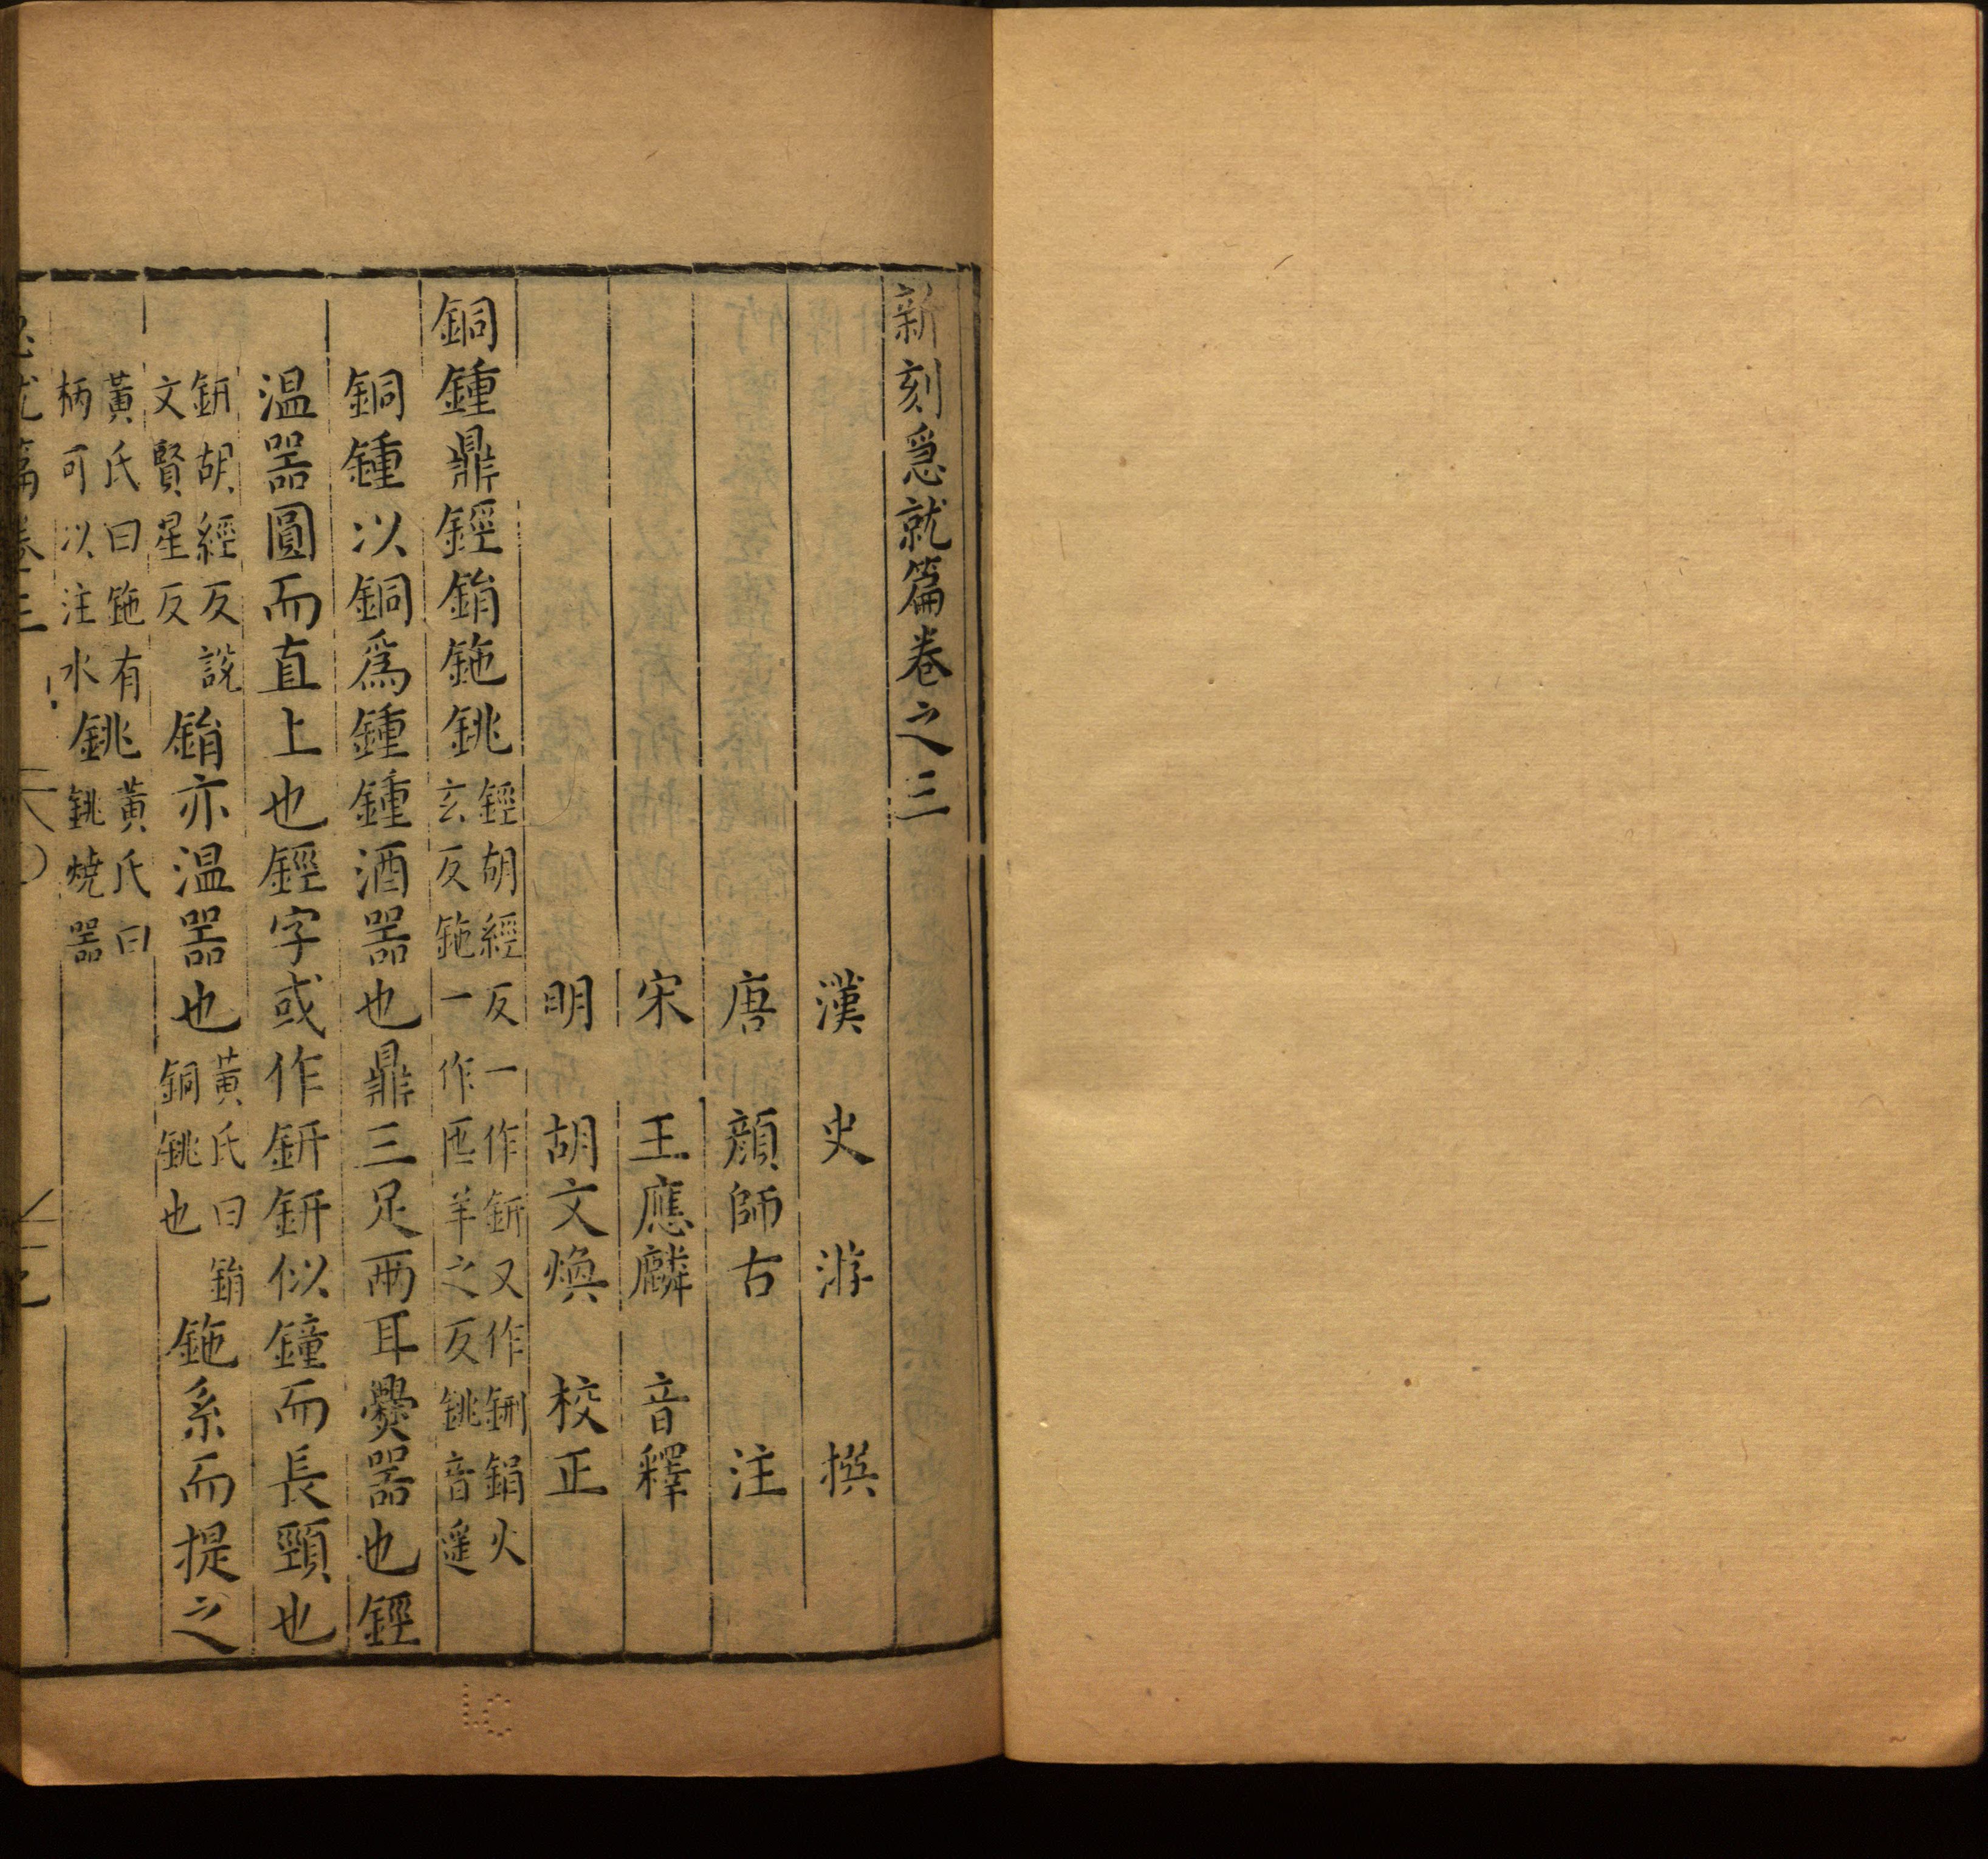 新刻急就篇卷之三
漢 史 游 撰
唐 顏師古 注
宋 王應麟 音釋
明 胡文煥 校正
銅鍾鼎鋞鋗鉇銚鋞胡經反一作鈃又作鉶鋗火玄反鉇一作匜羊之反銚音遥
銅鍾以銅爲鍾鍾酒器也鼎三足兩耳爨器也鋞
温器圓而直上也鋞字或作鈃鈃似鐘而長頸也
鈃胡經反說文賢星反鋗亦温器也黃氏曰鋗銅銚也鉇系而提之
黃氏曰鉇有柄可以注水銚黃氏曰銚燒器
急就篇卷三